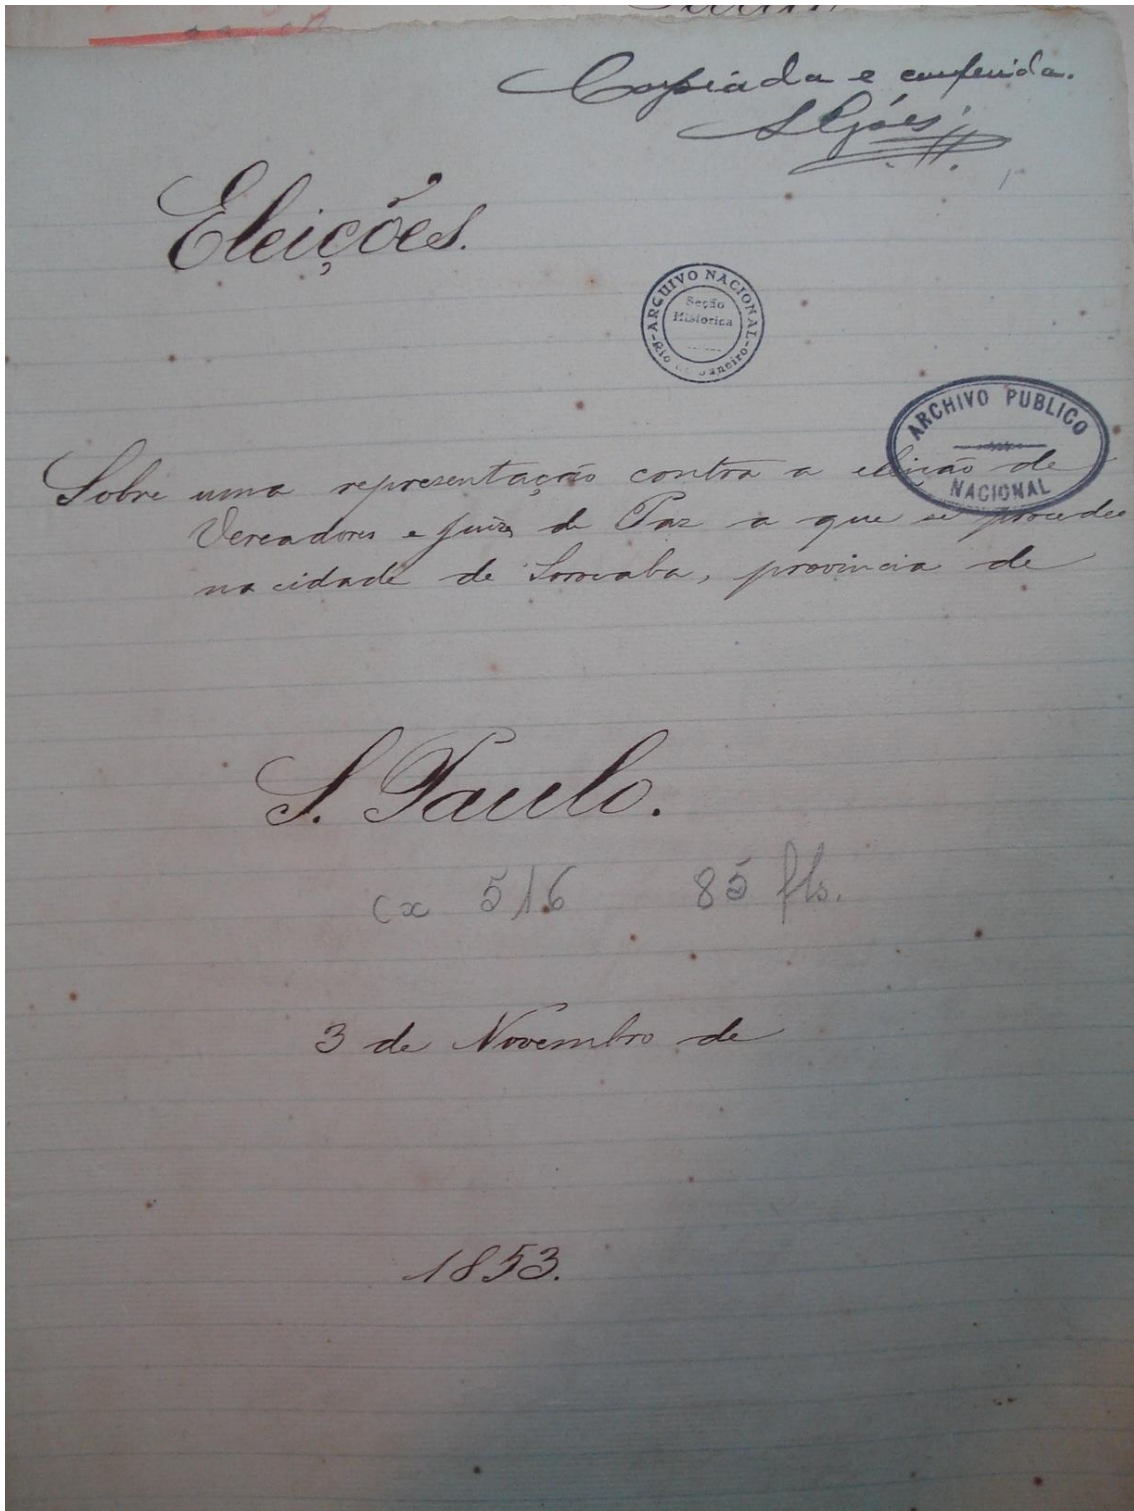 Copiada e conferida.
SGóes
Eleições.
ARCHIVO NACIONAL
Seção
Historica
Rio de Janeiro
ARCHIVO PUBLICO
NACIONAL
Sobre uma representação contra a eleição de
Vereadores e Juizes de Paz a que se procedeo
na cidade de Sorocaba, provincia de
S. Paulo.
cx 516 85 fls.
3 de Novembro de
1853.